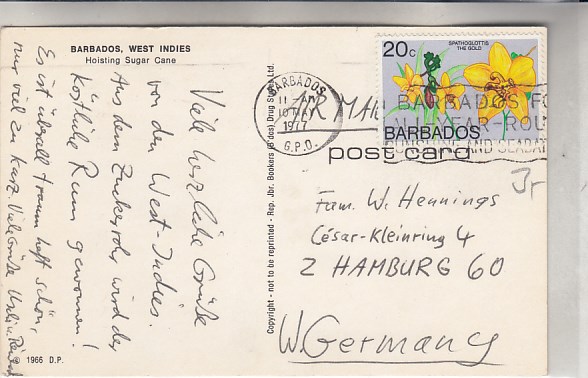 BARBADOS, WEST INDIES
Hoisting Sugar Cane
Viele herzliche Grüße
von den West-Indies.
Aus dem Zuckerrohr wird der
köstliche Rum gewonnen!
Es ist überall traumhaft schön,
nur viel zu kurz. Viele Grüße Uschi u.
© 1966 D.P.
Copyright - not to be reprinted - Rep. Jbr. Bookers (B'dos) Drug Stores Ltd.
BARBADOS
11 - AM
10 MAY
1977
G.P.O.
AIRMAIL
20c
SPATHOGLOTTIS
THE GOLD
BARBADOS
BARBADOS FO
ALL YEAR-ROU
SUNSHINE AND SEABAT
post card
Fam. W. Hennings
César-Kleinring 4
2 HAMBURG 60
W. Germany